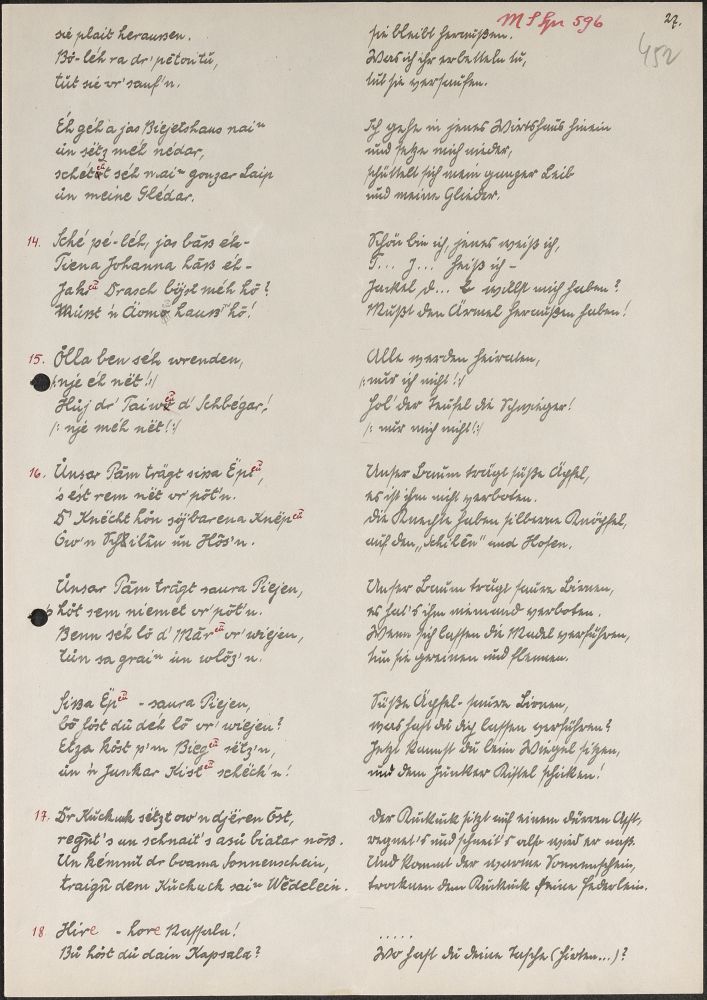 MSHn 596
27.
452
sié plait heraussen.
Bó-léh ra dr' pétontú,
tút sié vr' sauf'n.
Éh géh' a jas Biejetshaus nai
ún sétz méh nédar,
schétút séh mai gonzar Laip
ún meine Glédar.
14. Sché pé-léh, jas báss éh-
Tiena Johanna háss éh-
Drasch méh hó?
Müsst hauss' hó!
15. Ólla ben séh wrenden,
/: nje éh nét! :/
Húj dr' d' Schbégar!
/: nje méh nét! :/
16. Únsar Pám trágt sissa
s' ést rem nét vr' pót'n.
D' Knécht hón
ún Hós'n.
Únsar Pám trágt saura Piejen,
s' hót sem niemet vr' pót'n.
Benn séh ló d' vr' wiejen,
tún sa grai ún wlóz'n.
Sissa - saura Piejen,
bó lóst dú déh ló vr' wiejen?
Etza kóst p'm sétz'n,
ún 'n Junkar schéck'n!
17. Dr Kuckuk sétzt ow'n djéren Óst,
regnt's un schnait's asú biatar nóss.
Un kémmt dr boama Sonnenschein,
traign dem Kuckuck sai Wédelein.
18 Hire - hore Kassala!
Bú hóst dú dain Kapsala?
sie bleibt heraußen.
Was ich ihr erbetteln tu,
tut sie versaufen.
Ich gehe in jenes Wirtshaus hinein
und setze mich nieder,
schüttelt sich mein ganzer Leib
und meine Glieder.
Schön bin ich, jenes weiß ich,
T... J... heiß ich -
Jackel D... willst mich haben?
Mußt den Ärmel heraußen haben!
Alle werden heiraten,
/: nur ich nicht! :/
Hol' der Teufel die Schwieger!
/: nur mich nicht! :/
Unser Baum trägt süße Äpfel,
es ist ihm nicht verboten.
Die Knechte haben silberne Knöpfel,
auf den „Schilén" und Hosen.
Unser Baum trägt saure Birnen,
es hat's ihm niemand verboten.
Wenn sich lassen die Madel verführen,
tun sie greinen und flennen.
Süße Äpfel - saure Birnen,
was hast du dich lassen verführen?
Jetzt kannst du beim Wiegel sitzen,
und dem Junker Kistel schicken!
Der Kuckuck sitzt auf einem dürren Ast,
regnet's und schneit's also wird er naß.
Und kommt der warme Sonnenschein,
trocknen dem Kuckuck seine Federlein.
.....
Wo hast du deine Tasche (Hirten...)?